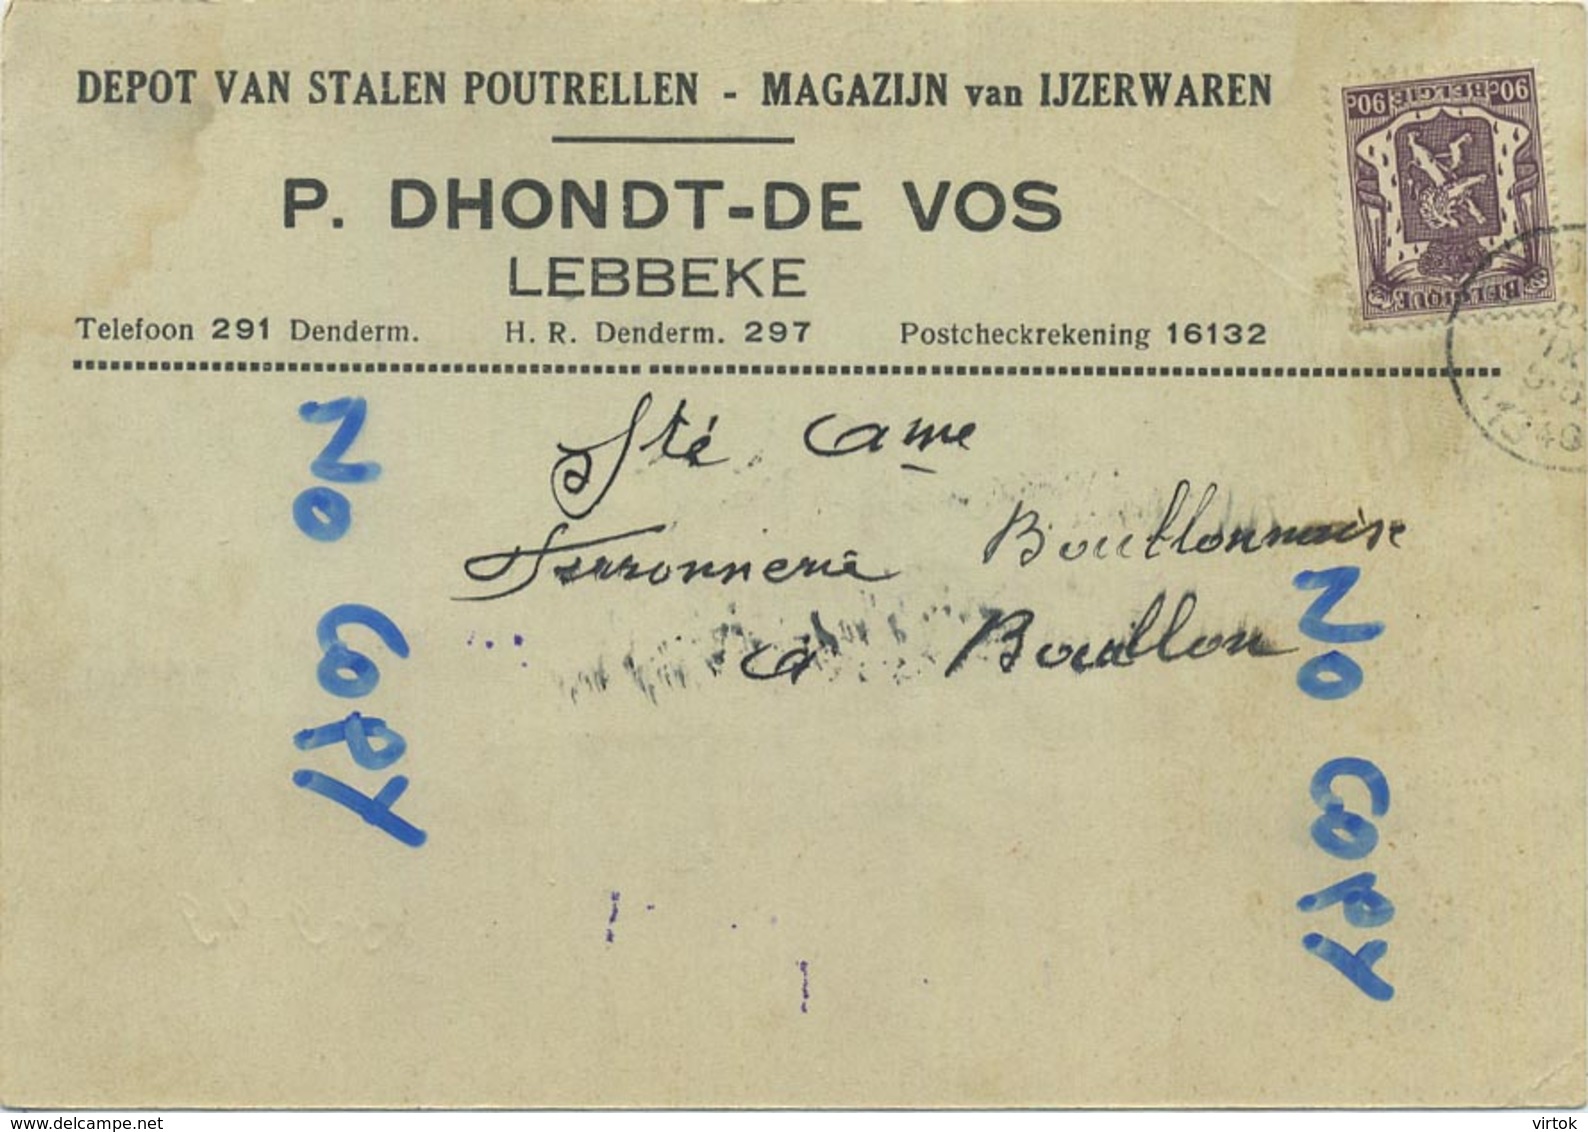 DEPOT VAN STALEN POUTRELLEN - MAGAZIJN van IJZERWAREN
P. DHONDT-DE VOS
LEBBEKE
Telefoon 291 Denderm. H. R. Denderm. 297 Postcheckrekening 16132
90c BELGIE 90c
BELGIQUE
1940
Sté ame
Ferronnerie Bouillonnaise
à Bouillon
No Copy
No Copy
delcampe.net
virtok